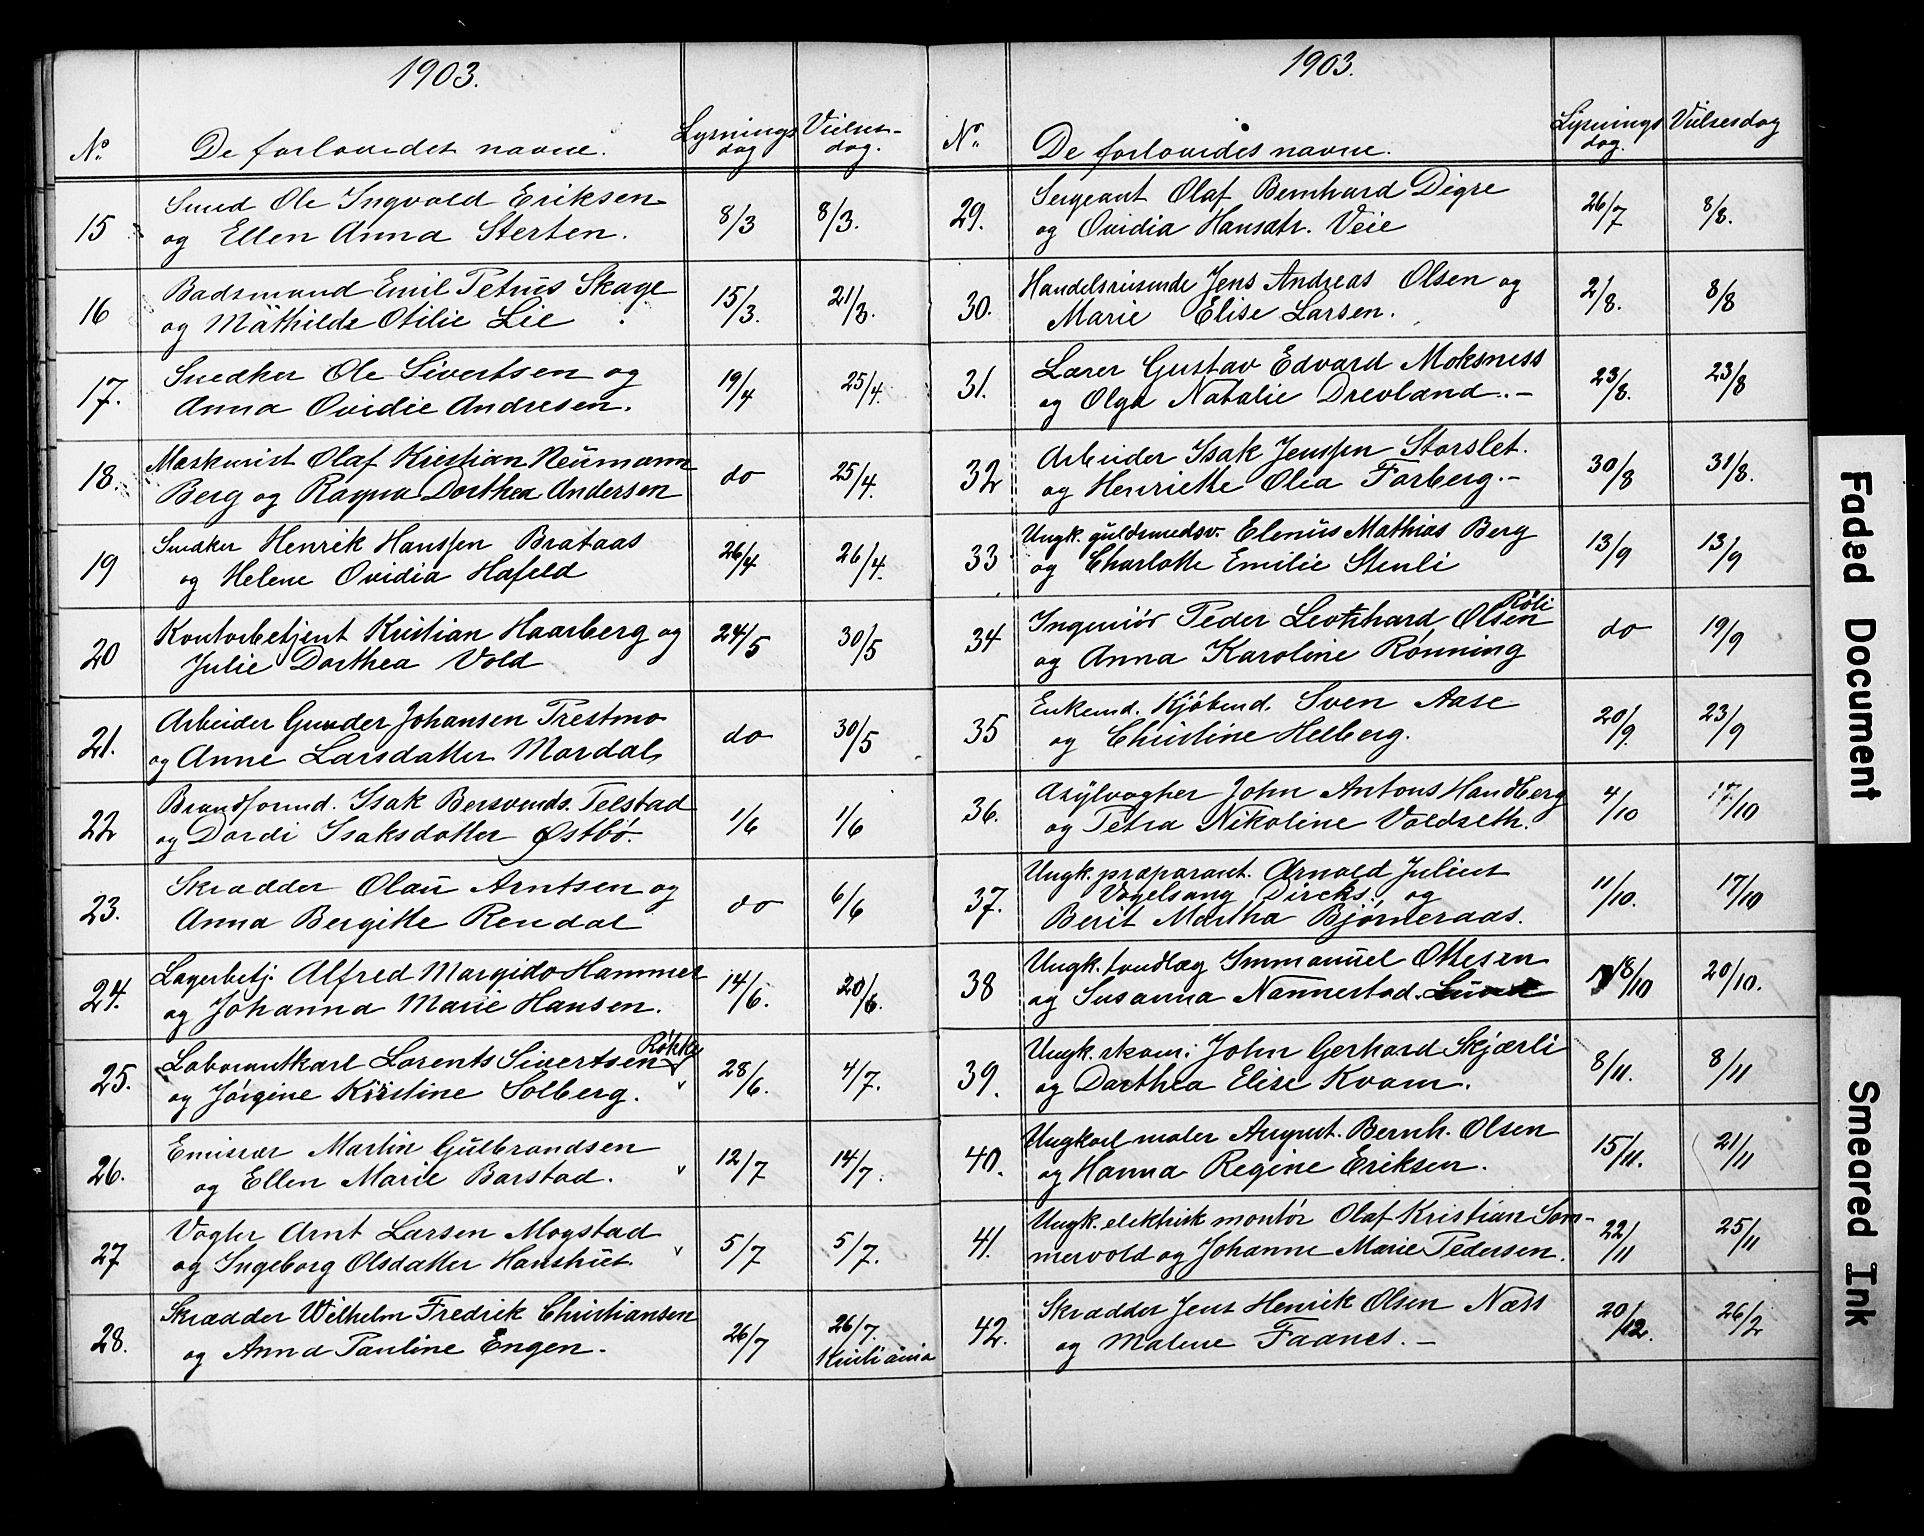 1903.
No. De forlovedes navne. Lysnings dag Vielses- dag.
15 Smed Ole Ingvald Eriksen
og Ellen Anna Sterten. 8/3 8/3.
16 Badsmand Emil Petrus Skage
og Mathilde Otilie Lie 15/3. 21/3.
17. Snedker Ole Sivertsen og
Anna Ovidie Andresen. 19/4 25/4.
18. Maskinist Olaf Kristian Neumann
Berg og Ragna Dorthea Andersen do 25/4.
19 Snedker Henrik Hanssen Brataas
og Helene Ovidia Hafeld 26/4 26/4.
20 Kontorbetjent Kristian Haarberg og
Julie Dorthea Vold 24/5 30/5
21. Arbeider Gunder Johansen Trestmo
og Anne Larsdatter Mardal do 30/5
22 Brandformd. Isak Bersvends. Telstad
og Dordi Isaksdatter Østbö. 1/6 1/6
23. Skrædder Olau Arntsen og
Anna Bergitte Rendal do 6/6
24. Lagerbetj. Alfred Margido Hammer
og Johanna Marie Hansen. 14/6. 20/6.
Rökke
25. Laborantkarl Lorents Sivertsen
og Jörgine Kristine Solberg. 28/6. 4/7.
26. Emisær Martin Gulbrandsen
og Ellen Marie Barstad. 12/7 14/7.
27 Vogter Arnt Larsen Mogstad
og Ingeborg Olsdatter Hanshus. 5/7 5/7.
28. Skrædder Wilhelm Fredrik Christiansen
og Anna Pauline Engen. 26/7 26/7.
Kristiania
1903.
No. De forlovedes navne. Lysnings dag. Vielsesdag
29. Sergeant Olaf Bernhard Digre
og Ovidia Hansdtr. Veie 26/7 8/8.
30. Handelsreisende Jens Andreas Olsen og
Marie Elise Larsen. 2/8. 8/8
31. Lærer Gustav Edvard Moksness
og Olga Natalie Drevland. - 23/8. 23/8
32 Arbeider Isak Jenssen Storslet.
og Henriette Olea Farberg. - 30/8 31/8.
33 Ungk. guldsmedsv. Elenus Mathias Berg
og Charlotte Emilie Stenli 13/9 13/9
Röli
34 Ingeniör Peder Leonhard Olsen
og Anna Karoline Rönning do 19/9
35 Enkemd. Kjöbmd. Sven Aase
og Christine Helberg. 20/9. 23/9
36. Asylvogter John Antons Handberg
og Petra Nikoline Voldseth. 4/10 17/10
37. Ungk. præparant. Arnold Julius
Vogelsang Dircks. og
Berit Martha Bjørneraas. 11/10. 17/10
38 Ungk. tandlæg Immanuel Ottesen
og Susanna Nannestad. 18/10 20/10.
39. Ungk. skom: John Gerhard Skjærli
og Dorthea Elise Kvam. 8/11. 8/11
40. Ungkarl maler August. Bernh. Olsen
og Hanna Regine Eriksen. 15/11. 21/11
41. Ungk. elektrisk montör Olaf Kristian Som-
mervold og Johanne Marie Pedersen. 22/11 25/11
42. Skrædder Jens Henrik Olsen Næss
og Malene Faanes. - 20/12. 26/2
Faded Document
Smeared Ink